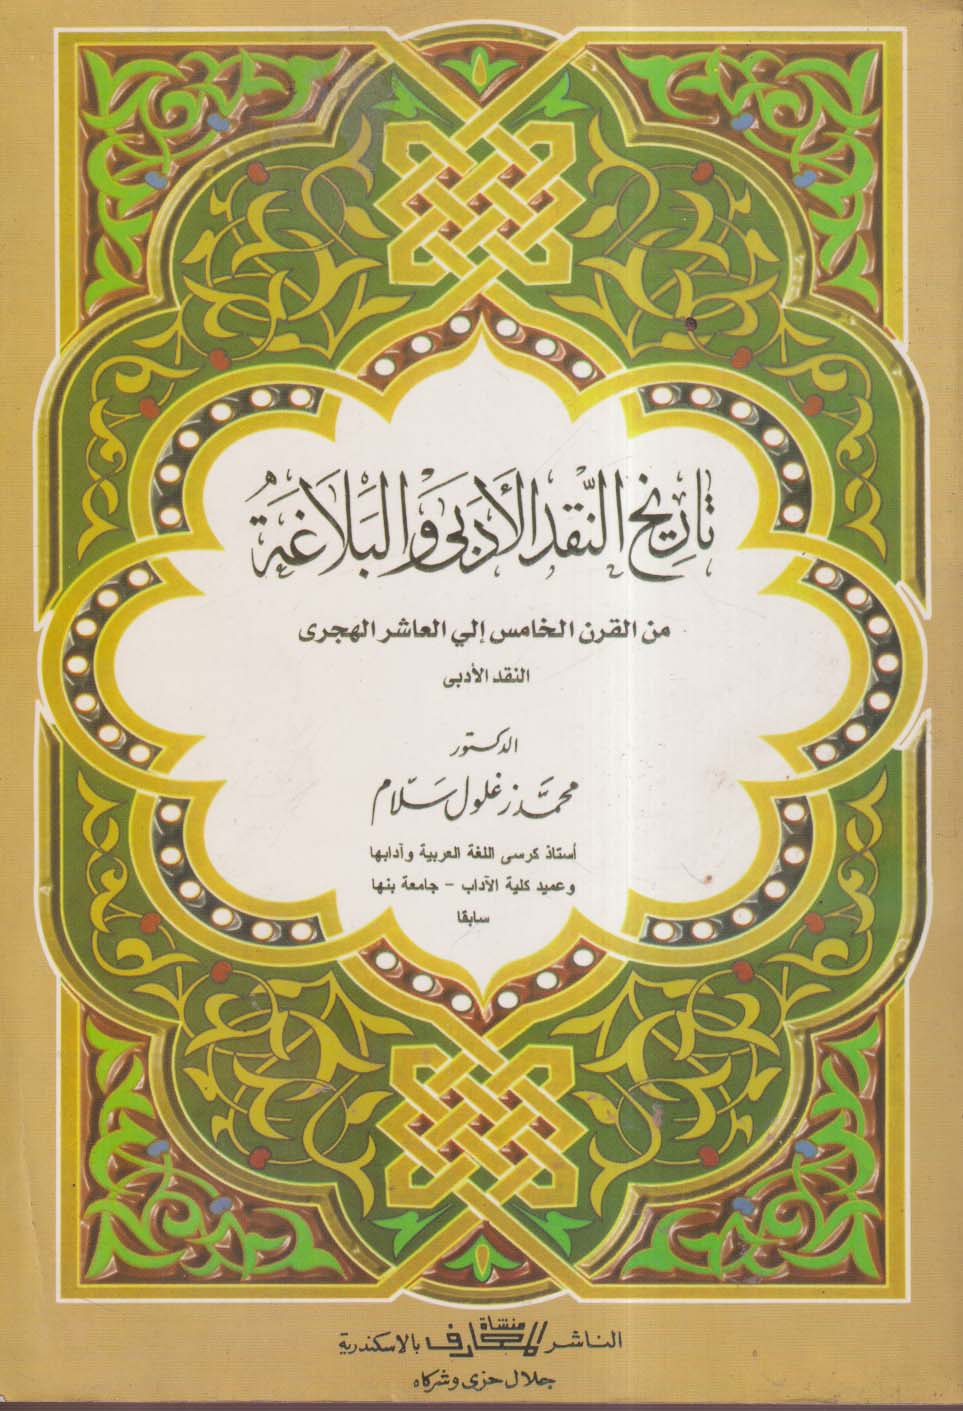 تاريخ النقد الأدبى والبلاغة
من القرن الخامس إلي العاشر الهجرى
النقد الأدبى
الدكتور
محمد زغلول سلام
أستاذ كرسى اللغة العربية وآدابها
وعميد كلية الآداب - جامعة بنها
سابقا
الناشر منشأة المعارف بالاسكندرية
جلال حزى وشركاه